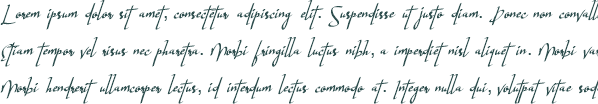 Lorem ipsum dolor sit amet, consectetur adipiscing elit. Suspendisse ut justo diam. Donec non convall
Etiam tempor vel risus nec pharetra. Morbi fringilla luctus nibh, a imperdiet nisl aliquet in. Morbi var
Morbi hendrerit ullamcorper lectus, id interdum lectus commodo at. Integer nulla dui, volutpat vitae soda